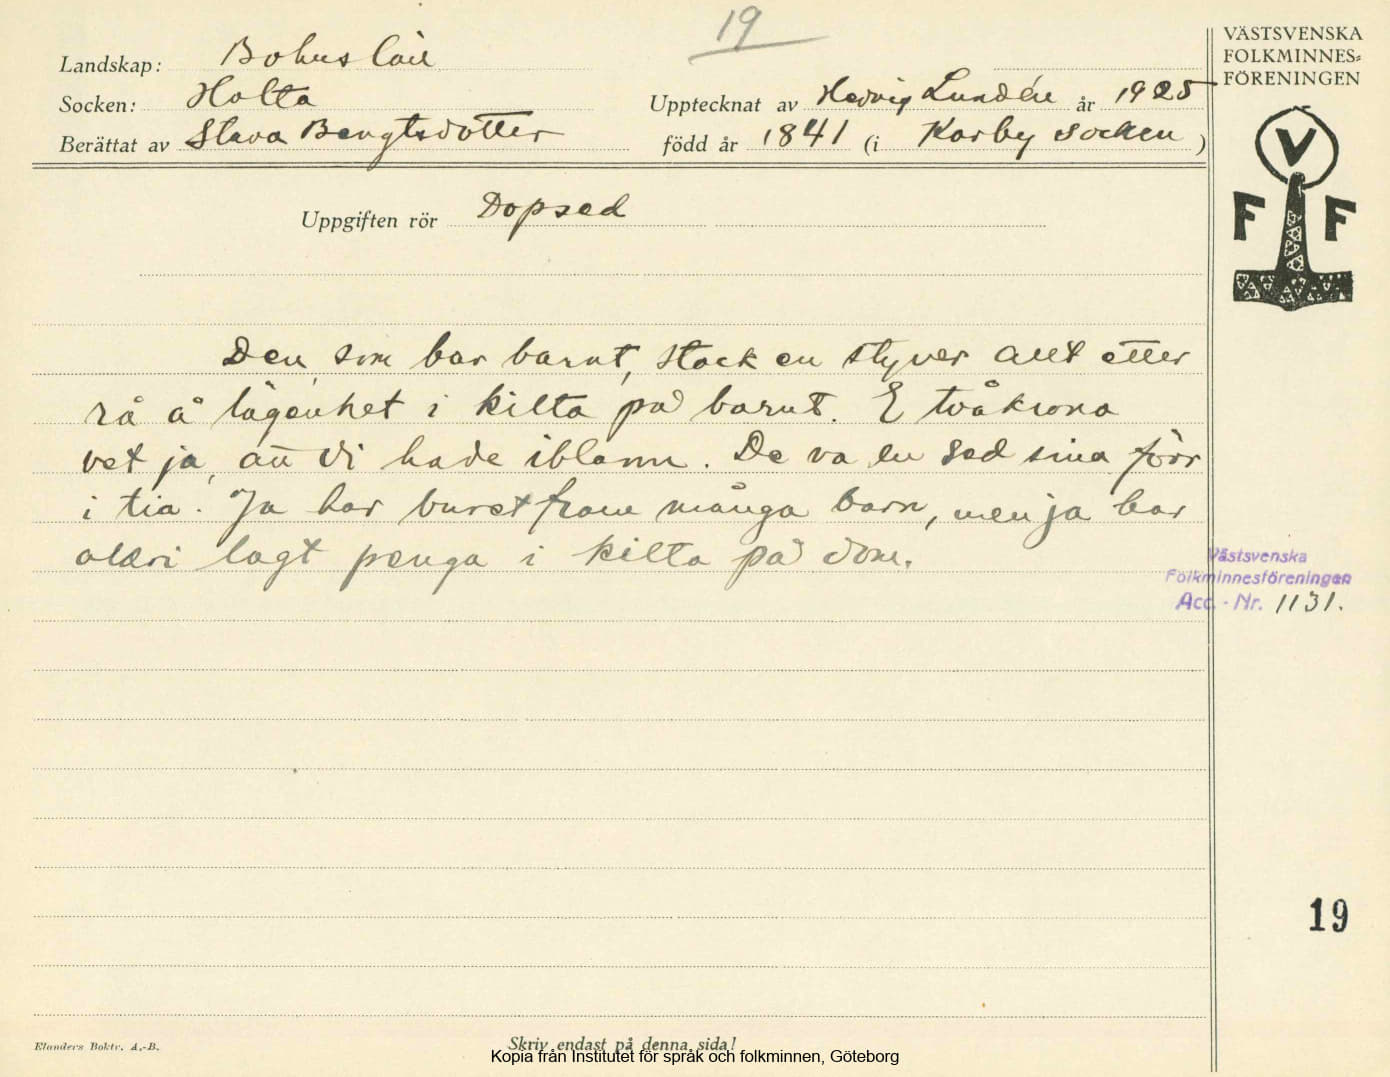 19
VÄSTSVENSKA
FOLKMINNES-
FÖRENINGEN
Landskap: Bohuslän
Socken: Holta
Upptecknat av Hedvig Lundén år 1925
Berättat av Stava Bengtsdotter
född år 1841 (i Karby socken)
V
F F
Uppgiften rör Dopsed
Den, som bar barnt, stack en styver allt etter
rå å lägenhet i kilta på barnt. E tvåkrona
vet ja, att di hade iblann. De va en sed sina förr
i tia. Ja har buret fram många barn, men ja har
aldri lagt penga i kilta på dom.
Västsvenska
Folkminnesföreningen
Acc.-Nr. 1131.
19
Elanders Boktr. A.-B.
Skriv endast på denna sida!
Kopia från Institutet för språk och folkminnen, Göteborg